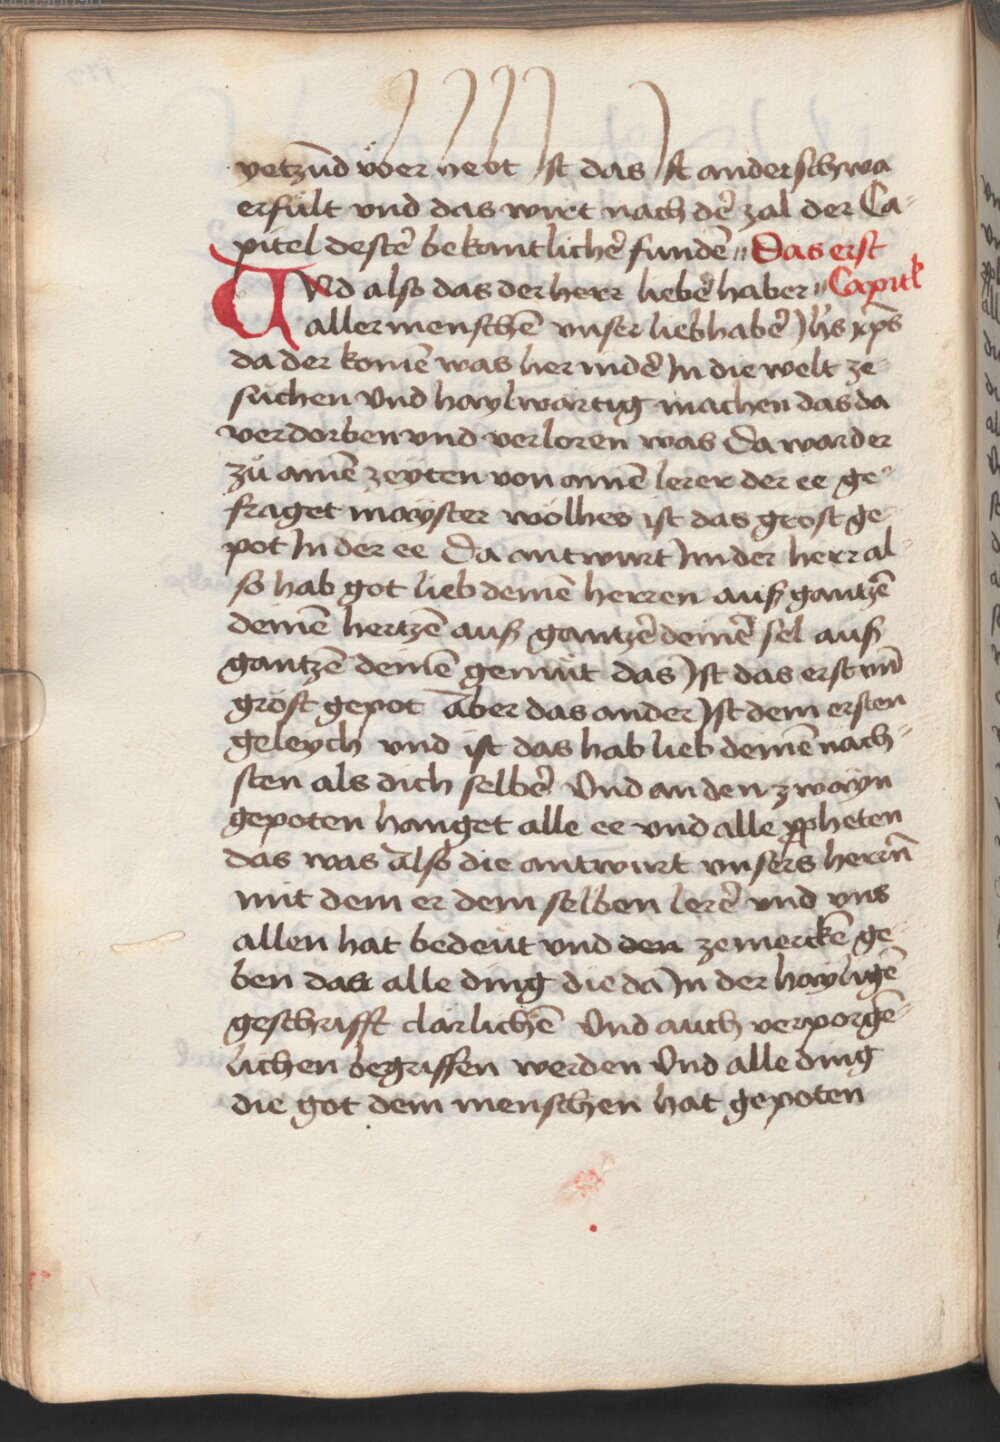 yetzūd vber nebt Ist das Ist anderschwa
erfült vnd das wirt nach dē zal der Ca-
pitel destē bekantlichē fundē Das erst
Vnd also das der herr liebē haber Capitel
aller menschē vnser liebhabē Ihs xp̄s
da der komē was her nidē In die welt ze
suchen Vnd haylwärtig machen das da
verdorben vnd verloren was Da ward er
zů ainē zeyten von ainē lerer der ee ge-
fraget mayster wölhes ist das gröst ge-
pot In der ee Da antwurt Im der herr al-
so hab got lieb deinē herren auß gantzē
deinē hertzē auß gantzē deinē sel auß
gantzē deinē gemüt das Ist das erst vn̄
gröst gepot aber das ander Ist dem ersten
geleych vnd ist das hab lieb deinē näch-
sten als dich selbē Vnd an den zwayn
gepoten hanget alle ee vnd alle ppheten
das was also die antwurt vnsers herrn̄
mit dem er dem selben lerē vnd vns
allen hat bedeut vnd den ze merckē ge-
ben das alle ding die da In der hayligē
geschrifft clärlichē Vnd auch verporgē-
lichen begriffen werden Vnd alle ding
die got dem menschen hat gepoten